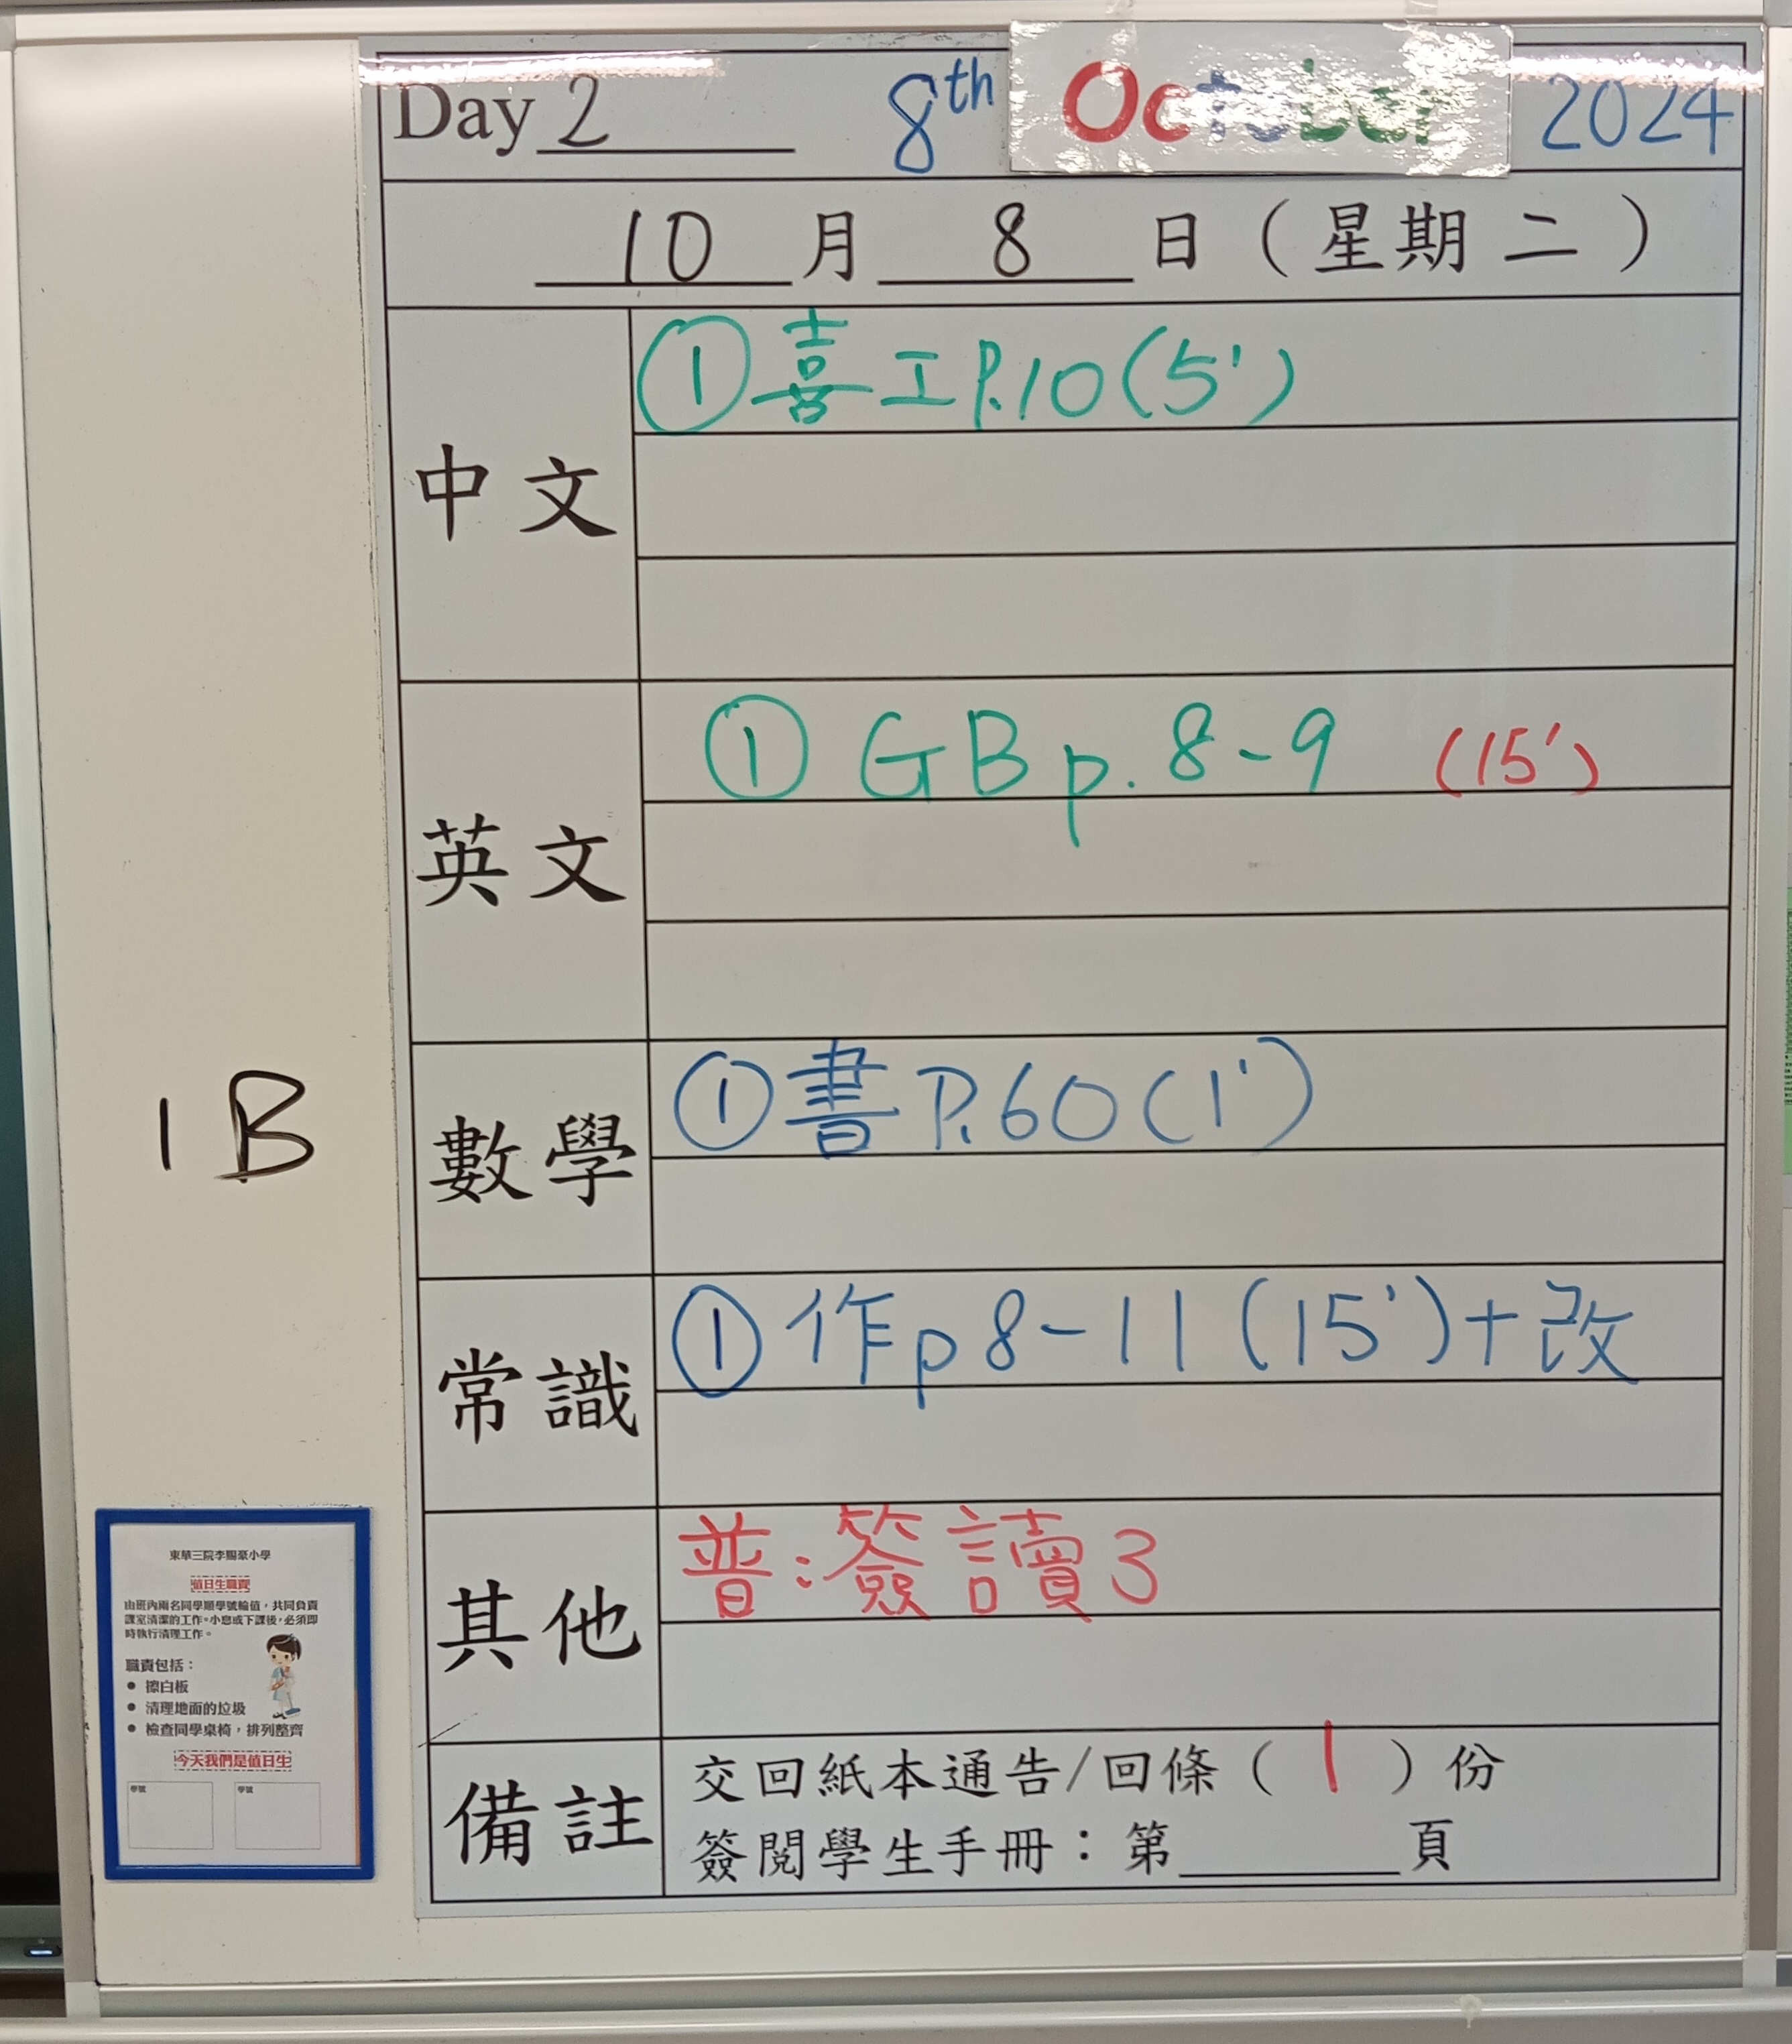 Day 2 8th October 2024
10 月 8 日 ( 星期 二 )
中文
① 喜工 P.10 (5')
英文
① GB p. 8-9 (15')
1B
數學
① 書 P.60 (1')
常識
① 作 p 8-11 (15') + 改
其他
普:簽讀3
備註
交回紙本通告/回條 ( 1 ) 份
簽閱學生手冊：第______頁
東華三院李賜豪小學
值日生職責
由班內兩名同學順學號輪值，共同負責
課室清潔的工作。小息或下課後，必須即
時執行清理工作。
職責包括：
● 擦白板
● 清理地面的垃圾
● 檢查同學桌椅，排列整齊
今天我們是值日生
學號 學號